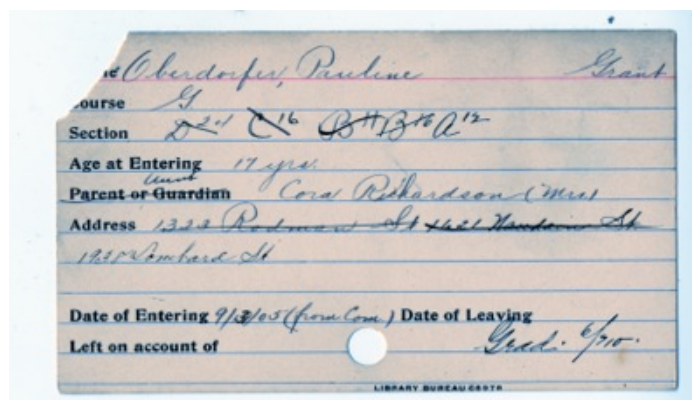 Oberdorfer, Pauline Grant
Course G
Section D 24 C 16 B 11 B 16 A 12
Age at Entering 17 yrs.
Aunt
Parent or Guardian Cora Richardson (Mrs)
Address 1322 Rodman St St
Lombard St
Date of Entering 9/3/05 (from Com.) Date of Leaving
Left on account of Grad. 6/
LIBRARY BUREAU